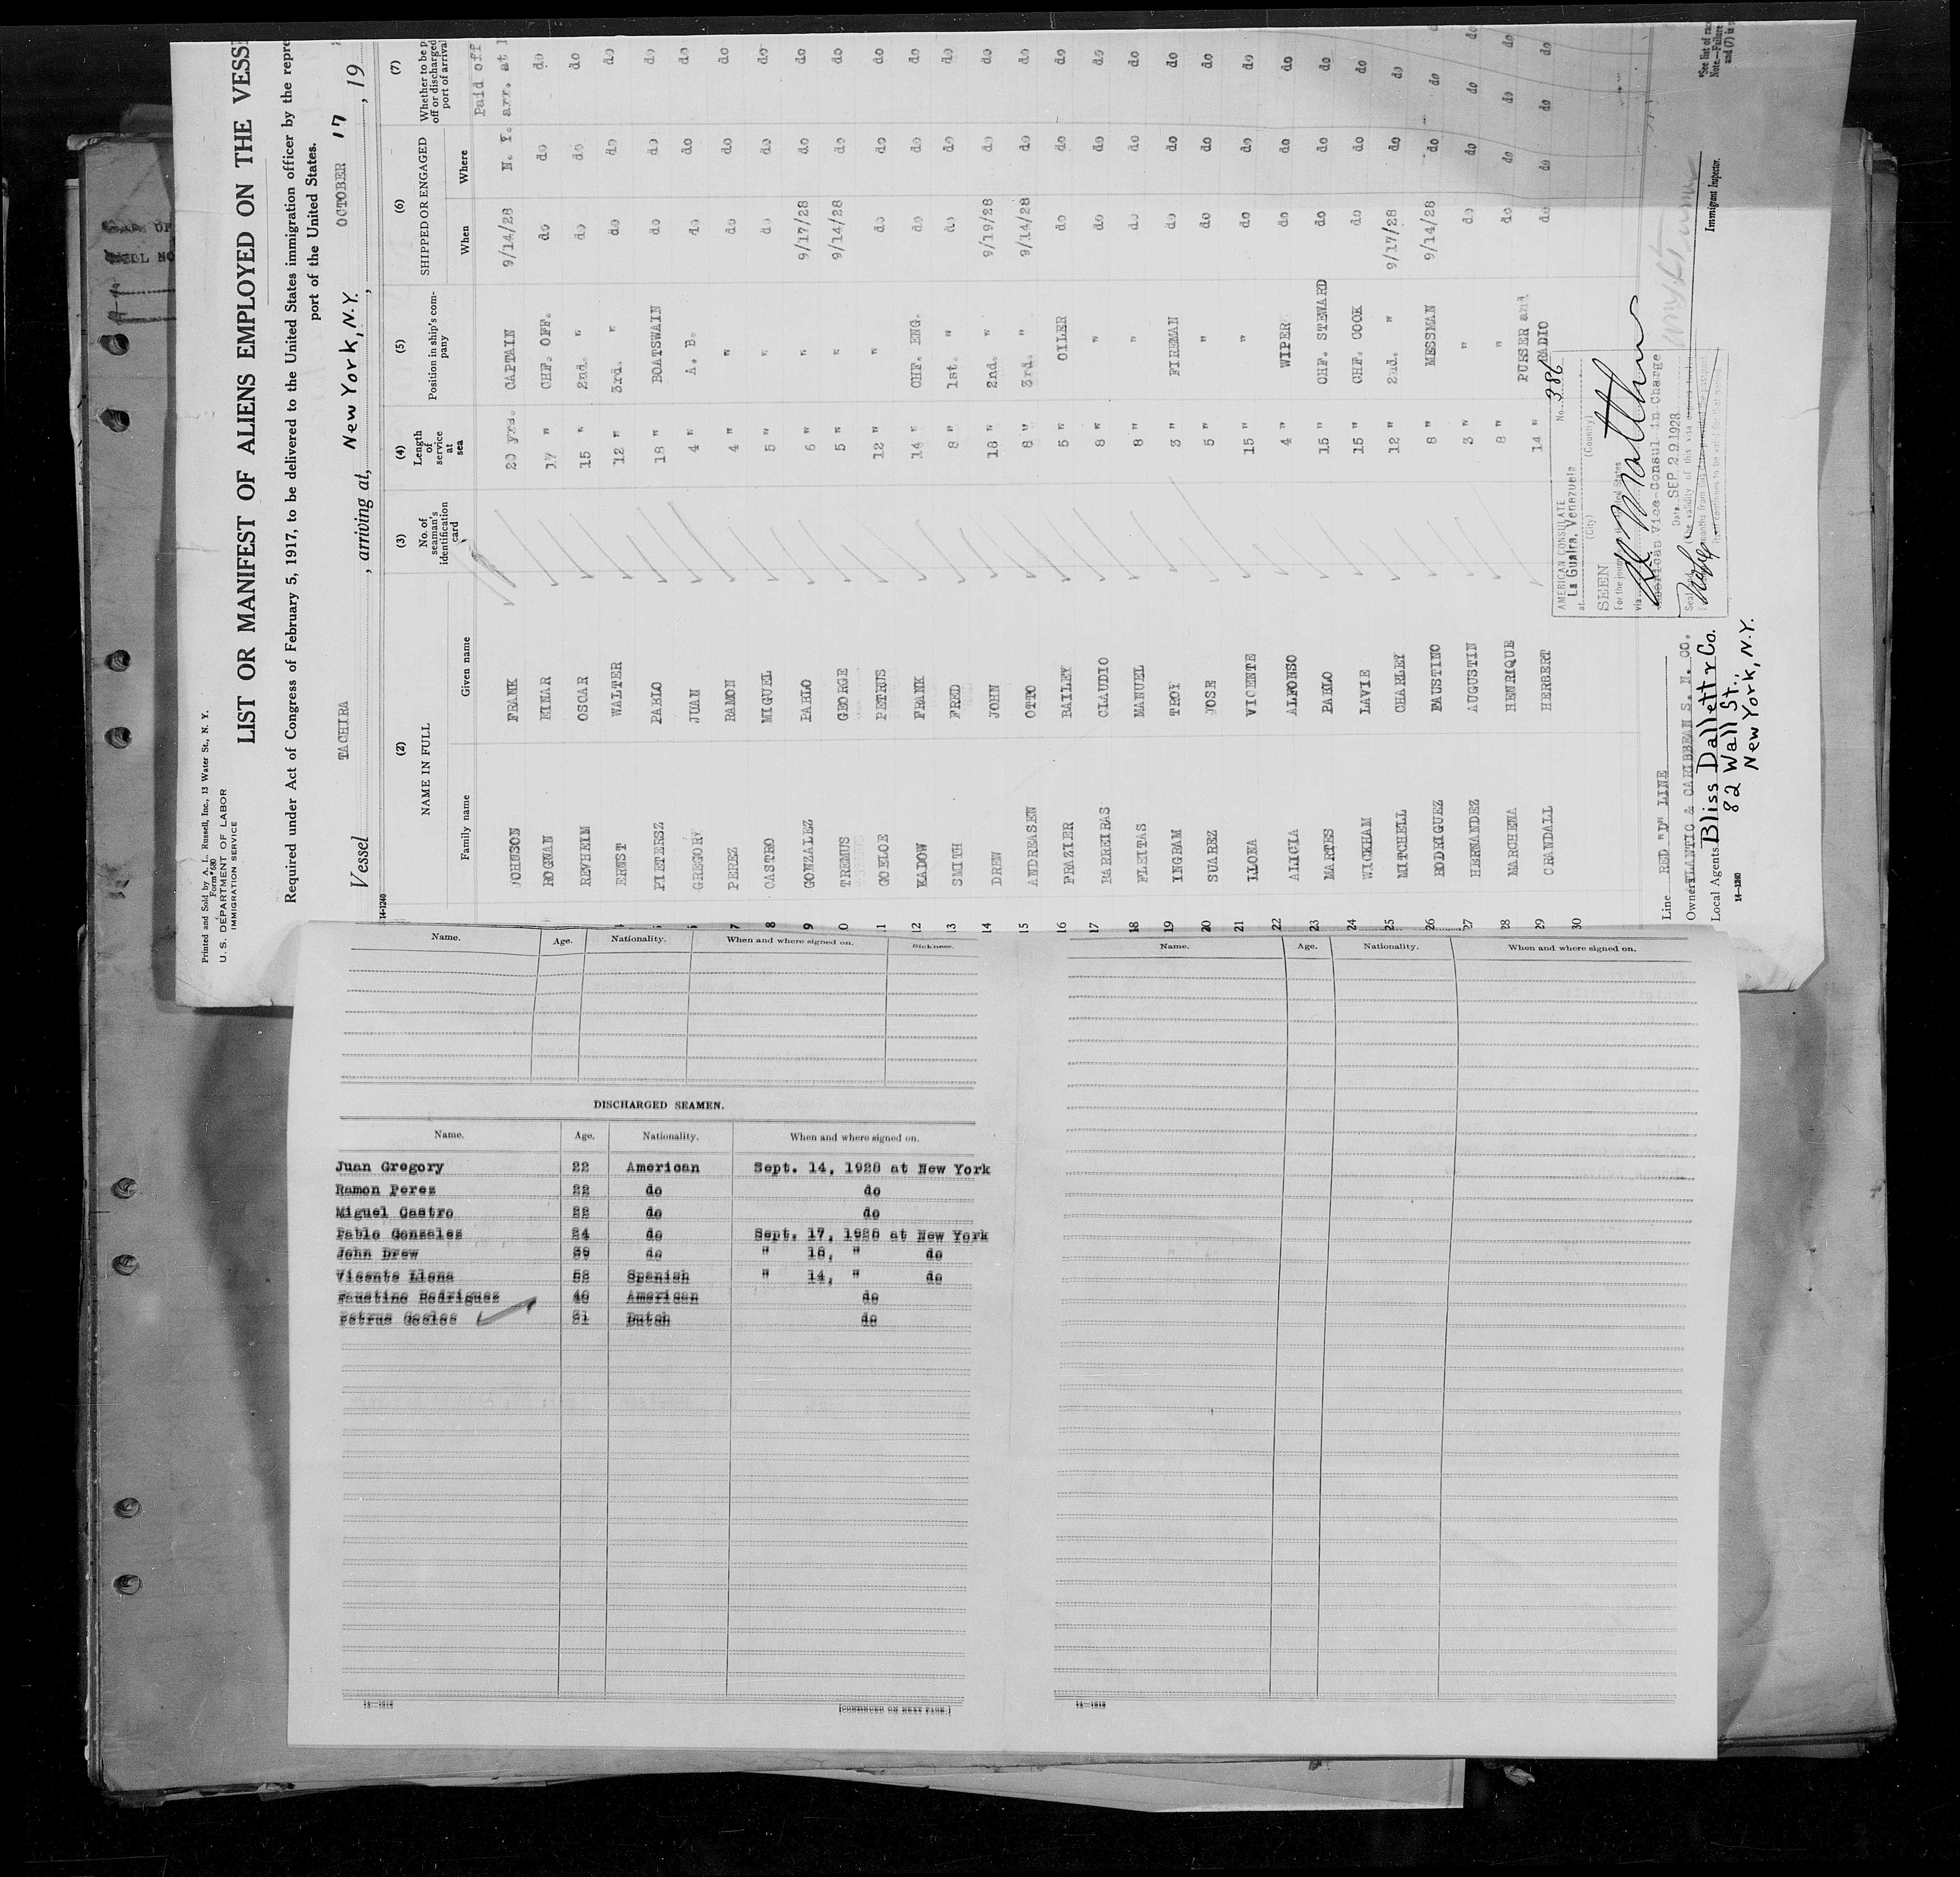 Printed and Sold by A. L. Russell, Inc., 13 Water St., N. Y.
Form 680
U. S. DEPARTMENT OF LABOR
IMMIGRATION SERVICE
LIST OR MANIFEST OF ALIENS EMPLOYED ON THE VESSE
Required under Act of Congress of February 5, 1917, to be delivered to the United States immigration officer by the repre
port of the United States.
Vessel TACHIRA, arriving at, New York, N.Y. OCTOBER 17, 19
14-1240
(2) (3) (4) (5) (6) (7)
NAME IN FULL No. of seaman's identification card Length of service at sea Position in ship's company SHIPPED OR ENGAGED Whether to be p off or discharged port of arrival
Family name Given name When Where
Paid off
JOHNSON FRANK 20 yrs. CAPTAIN 9/14/28 N. Y. arr. at
ROGNAN EINAR 17 " CHF. OFF. do do do
REVHEIM OSCAR 15 " 2nd. " do do do
ERNST WALTER 12 " 3rd. " do do do
PIETERSZ PABLO 18 " BOATSWAIN do do do
GREGORY JUAN 4 " A. B. do do do
7 PEREZ RAMON 4 " " do do do
8 CASTRO MIGUEL 5 " " do do do
9 GONZALEZ PABLO 6 " " 9/17/28 do do
0 TREMUS GEORGE 5 " " 9/14/28 do do
11 GOELOE PETRUS 12 " " do do do
12 KADOW FRANK 14 " CHF. ENG. do do do
13 SMITH FRED 8 " 1st. " do do do
14 DREW JOHN 18 " 2nd. " 9/19/28 do do
15 ANDREASEN OTTO 8 " 3rd. " 9/14/28 do do
16 FRAZIER BAILEY 5 " OILER do do do
17 BARREIRAS CLAUDIO 8 " " do do do
18 FLEITAS MANUEL 8 " " do do do
19 INGRAM TROY 3 " FIREMAN do do do
20 SUAREZ JOSE 5 " " do do do
21 LLONA VICENTE 15 " " do do do
22 ALICIA ALFONSO 4 " WIPER do do do
23 MARTES PABLO 15 " CHF. STEWARD do do do
24 WICKHAM LAVIE 15 " CHF. COOK do do do
25 MITCHELL CHARLEY 12 " 2nd. " 9/17/28 do do
26 RODRIGUEZ FAUSTINO 8 " MESSMAN 9/14/28 do do
27 HERNANDEZ AUGUSTIN 3 " " do do do
28 MARCHENA HENRIQUE 8 " " do do do
29 CRANDALL HERBERT 14 " PURSER and RADIO do do do
30
AMERICAN CONSULATE No. 386
at La Guaira, Venezuela
(City) (Country)
SEEN
For the journey to the United States
via
American Vice-Consul in Charge
Date SEP 29 1928
Line RED "D" LINE
Owners ATLANTIC & CARIBBEAN S. N. CO.
Local Agents Bliss Dallett & Co.
82 Wall St.,
New York, N.Y.
14-1240
Immigrant Inspector.
*See list of rac
Note.—Failure
and (7) is p
Name. Age. Nationality. When and where signed on. Sickness.
DISCHARGED SEAMEN.
Name. Age. Nationality. When and where signed on.
Juan Gregory 22 American Sept. 14, 1928 at New York
Ramon Perez 22 do do
Miguel Castro 22 do do
Pablo Gonzales 24 do Sept. 17, 1928 at New York
John Drew 39 do " 18, " do
Vicente Llona 52 Spanish " 14, " do
Faustino Rodriguez 40 American do
Petrus Goeloe 31 Dutch do
14—1212 [CONTINUED ON NEXT PAGE.]
Name. Age. Nationality. When and where signed on.
14—1212